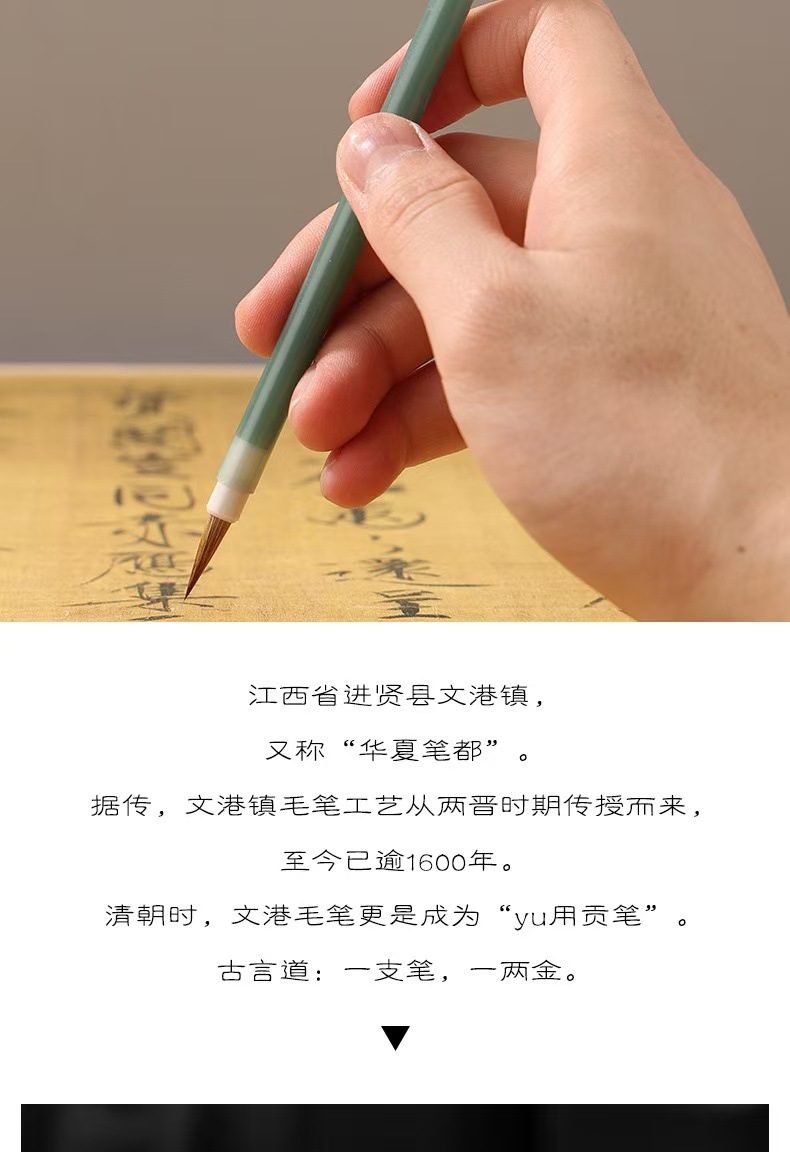 江西省进贤县文港镇，
又称“华夏笔都”。
据传，文港镇毛笔工艺从两晋时期传授而来，
至今已逾1600年。
清朝时，文港毛笔更是成为“yu用贡笔”。
古言道：一支笔，一两金。